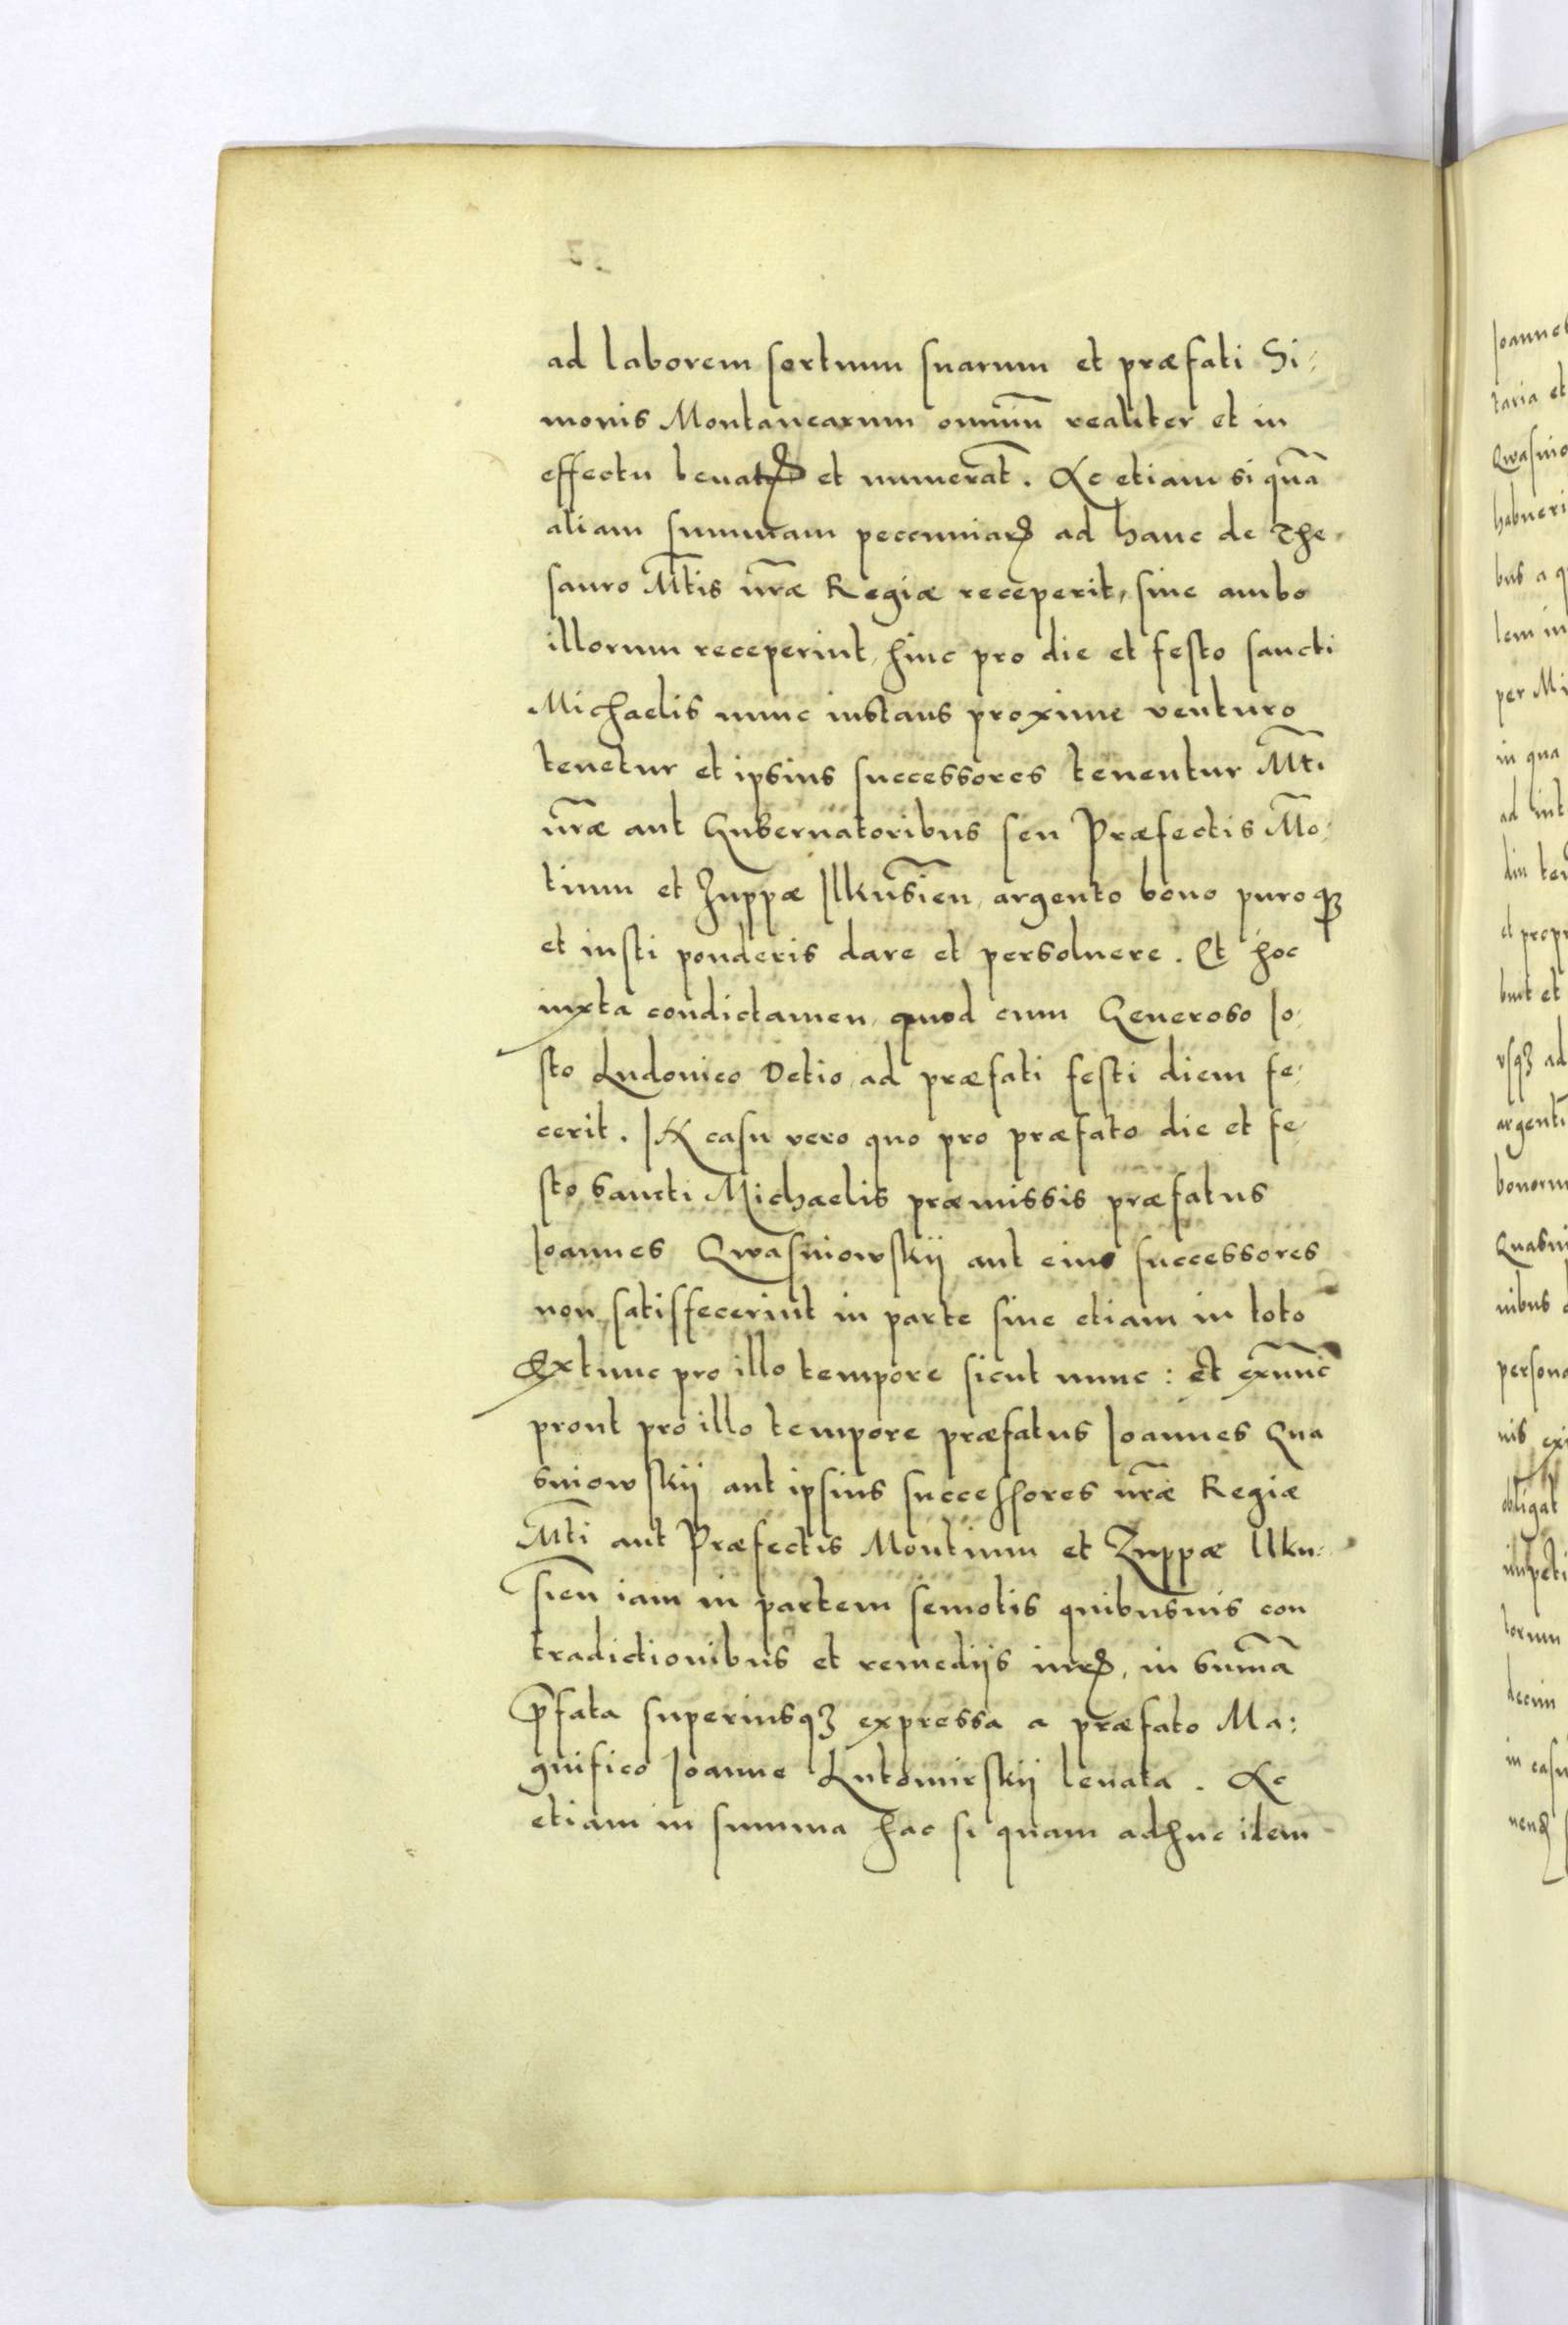 ad laborem sortium suarum et præfati Si-
monis Montanearum omniũ realiter et in
effectu leuatꝝ et numerat̃. Ac etiam si quã
aliam summam peccuniarꝝ ad hanc de The-
sauro Mt̃is nr̃æ Regiæ receperit, siue ambo
illorum receperint, hinc pro die et festo sancti
Michaelis nunc instans proxime venturo
tenetur et ipsius successores tenentur Mt̃i
nr̃æ aut Gubernatoribus seu Præfectis Mõ-
tium et Zuppæ Ilkusien̄, argento bono puroqȝ
et iusti ponderis dare et persoluere. Et hoc
iuxta condictamen, quod cum Generoso Io-
sto Ludouico Detio, ad præfati festi diem fe-
cerit. IN casu vero quo pro præfato die et fe-
sto Sancti Michaelis præmissis præfatus
Joannes Qwasniowskij aut eius successores
non satisfecerint in parte siue etiam in toto
Extunc pro illo tempore sicut nunc: et exnũc
prout pro illo tempore præfatus Joannes Qua
sniowskij aut ipsius successores nr̃æ Regiæ
Mt̃i aut Præfectis Montium et Zuppæ Ilku-
sien̄ iam in partem semotis quibusuis con
tradictionibus et remedijs iurꝝ, in summã
p̃fata superiusqȝ expressa a præfato Ma:
gnifico Joanne Lutomirskij leuata. Ac
etiam in summa hac si quam adhuc idem